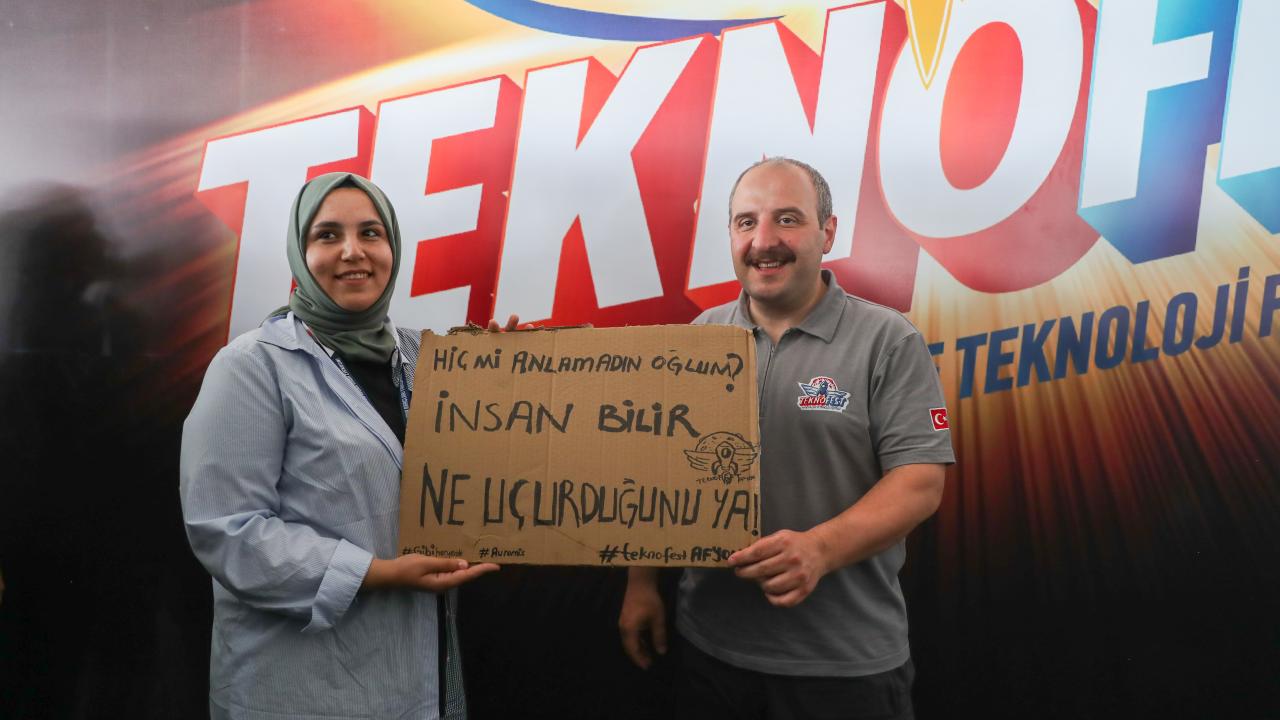 TEKNOF
E TEKNOLOJİ F
HİÇ Mİ ANLAMADIN OĞLUM?
İNSAN BİLİR
NE UÇURDUĞUNU YA!
#teknofest AFYO
TEKNOFEST